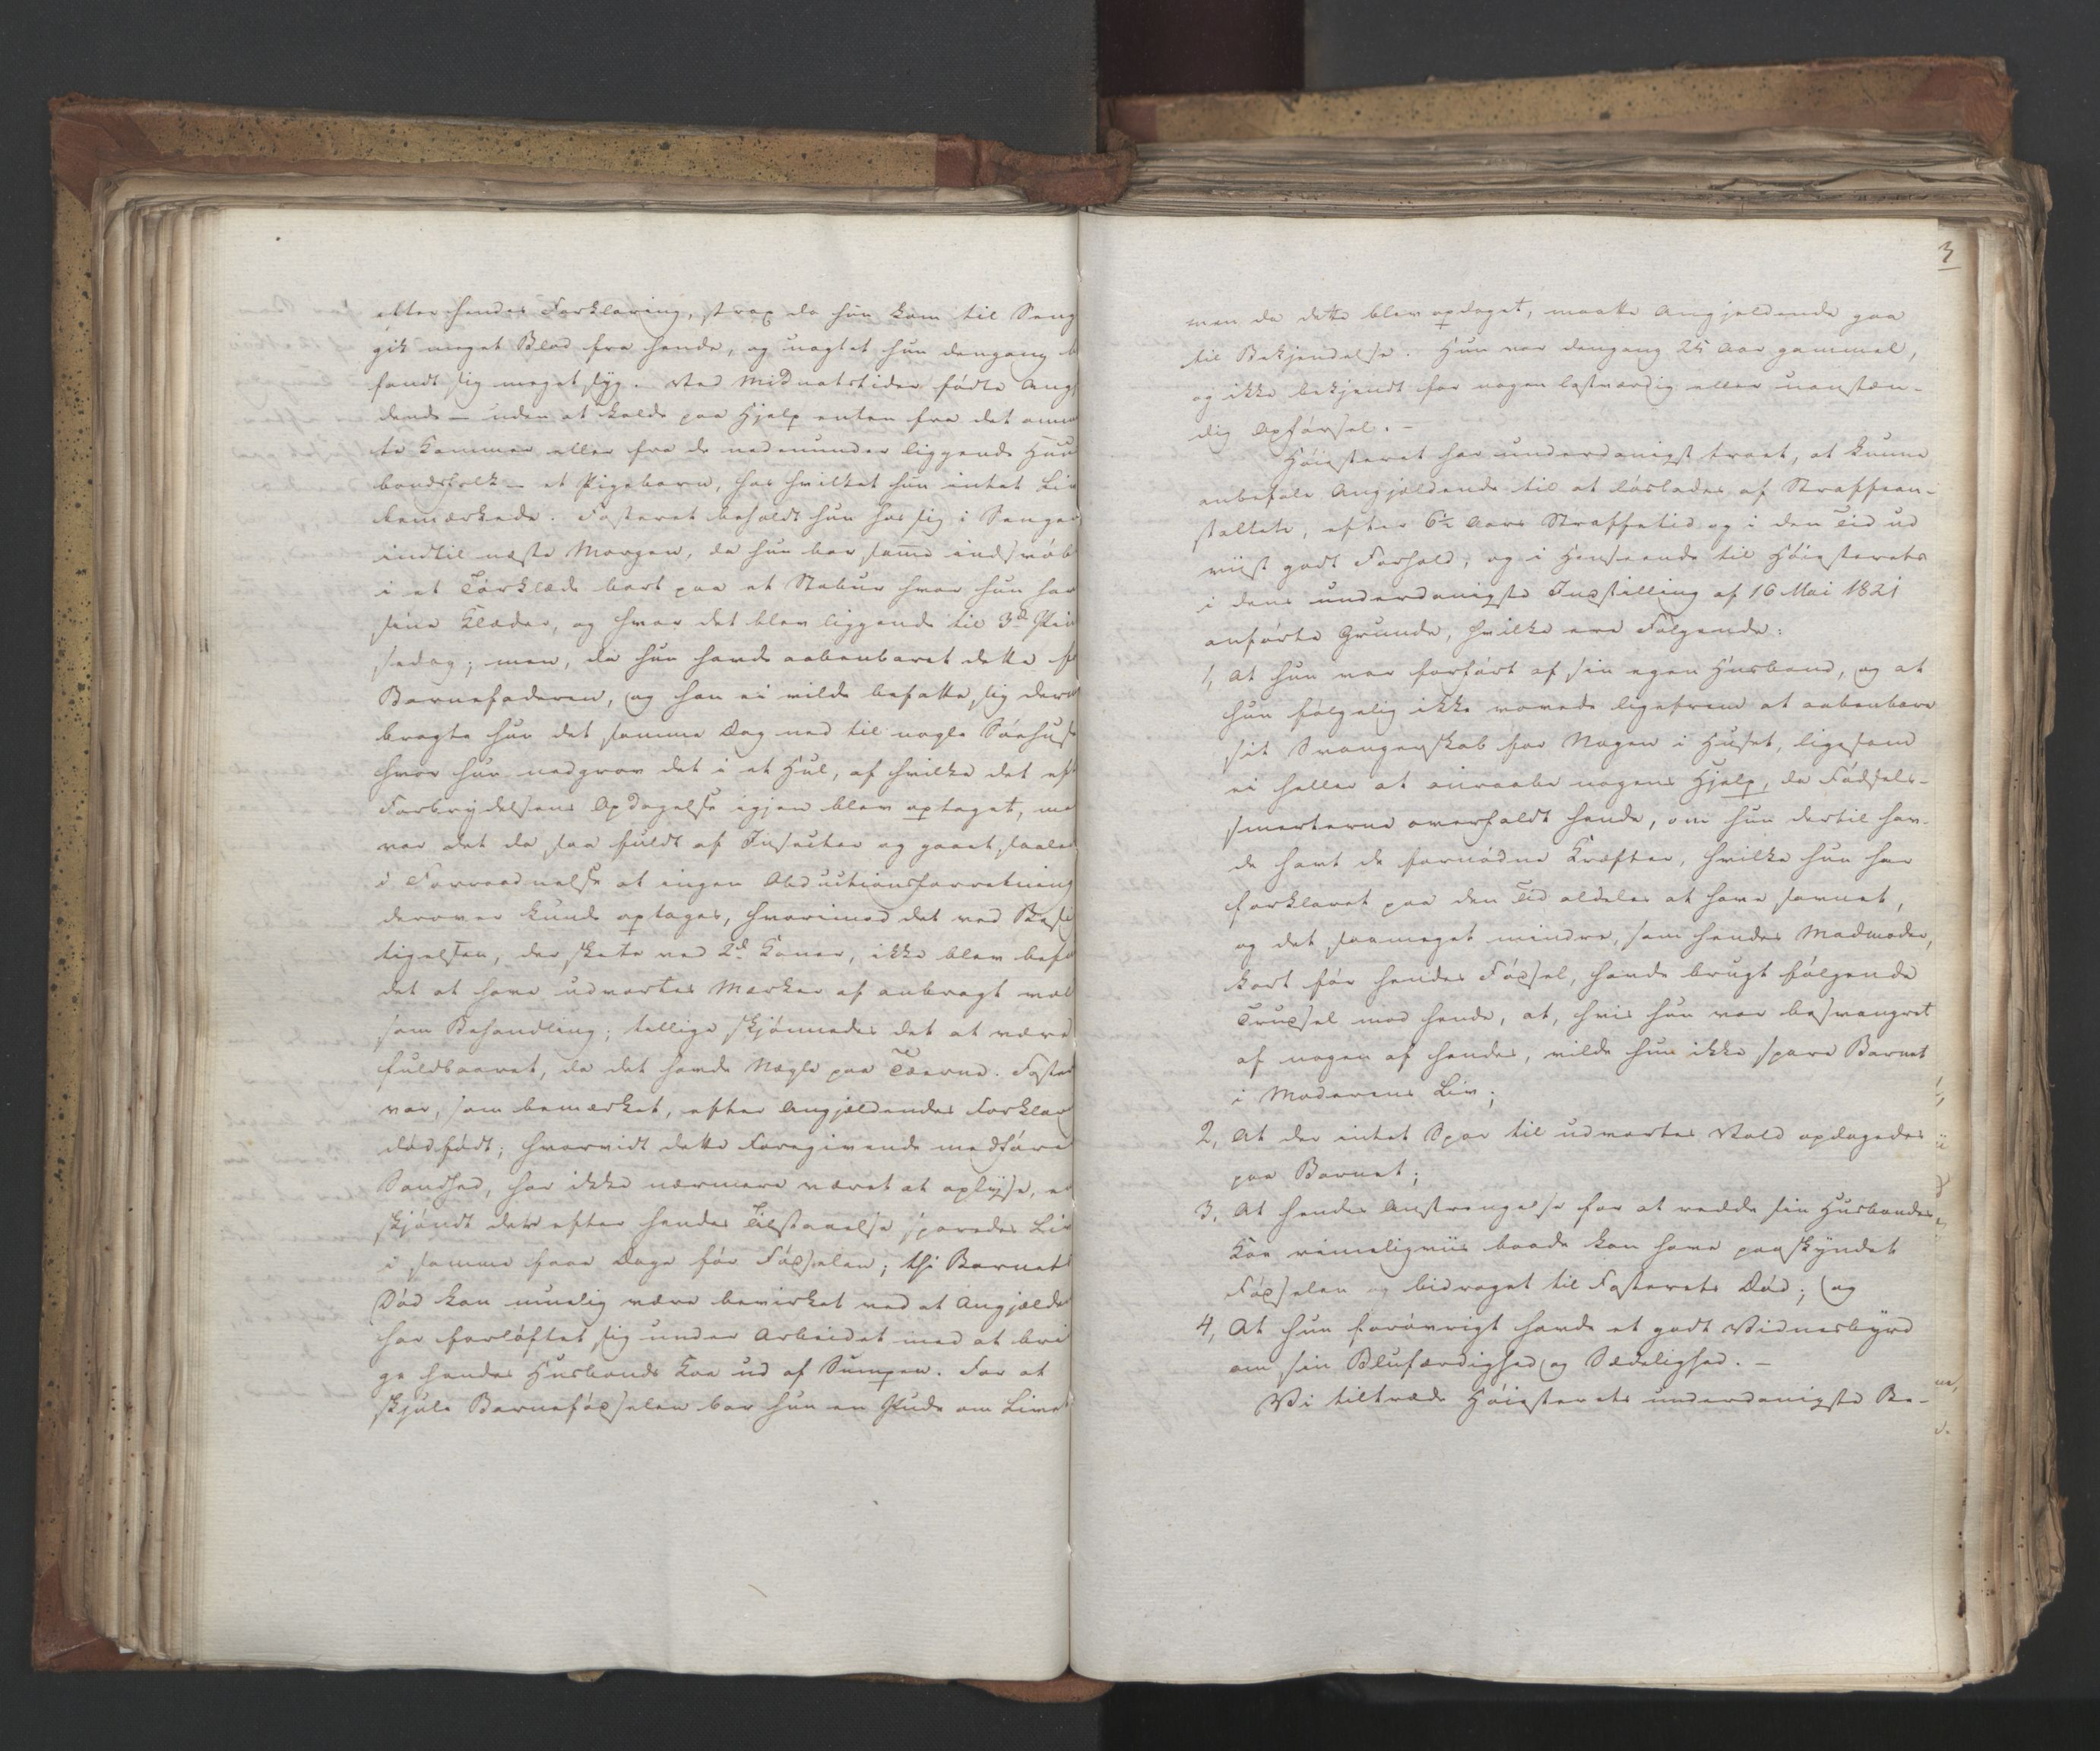 efter hendes Forklaring, strax da hun kom til Seng
gik meget Blod fra hende, og uagtet hun dengang b
fandt sig meget syg. Ved Midnatstider fødte Angj
dende – uden at kalde paa Hjelp enten fra det annu
te Kammer eller fra de nedenunder liggende Huu
bondsfolk – et Pigebarn, hos hvilket hun intet Liv
bemærkede. Fosteret beholdt hun hos sig i Sengen
indtil næste Morgen, da hun bar samme indsvøb
i et Tørklæde bort paa et Stabur hvor hun hav
sine Klæder, og hvor det blev liggende til 3de Pin
sedag; men, da hun havde aabenbaret dette f
Barnefaderen, og han ei vilde befatte sig derm
bragte hun det samme Dag ned til nogle Søehuse
hvor hun nedgrov det i et Hul, af hvilke det eft
Forbrydelsens Opdagelse igjen blev optaget, me
var det da saa fuldt af Insecter og gaaet saaled
i Forraadnelse at ingen Obductionsforretning
derover kunde optages, hvorimod det ved Besig
tigelsen, der skete ved 2de Koner, ikke blev befu
det at have udvortes Mærker af anbragt vold
som Behandling; tillige skjønnedes det at være
fuldbaaret, da det havde Nægle paa Tæerne. Foster
var, som bemærket, efter Angjældendes Forklar
dødfødt; hvorvidt dette Foregivende medfører
Sandhed, har ikke nærmere været at oplyse, en
skjøndt der efter hendes Tilstaaelse sporedes Liv
i samme faae Dage før Fødselen; thi Barnets
Død kan muelig være bevirket ved at Angjælde
har forløftet sig under Arbeidet med at brin
ge hendes Husbonds Koe ud af Sumpen. For at
skjule Barnefødselen bar hun en Pude om Livet
3
men da dette blev opdaget, maatte Angjældende gaa
til Bekjendelse. Hun var dengang 25 Aar gammel,
og ikke bekjendt for nogen lastværdig eller uanstæn-
dig Opførsel. –
Høiesteret har underdanigst troet, at kunne
anbefale Angjældende til at løslades af Straffean-
stalten, efter 6½ Aars Straffetid og i den Tid ud
viist godt Forhold, og i Henseende til Høiesterets
i dens underdanigste Indstilling af 16 Mai 1821
anførte Grunde, hvilke ere Følgende:
1, At hun var forført af sin egen Husbond, og at
hun følgelig ikke vovede ligefrem at aabenbare
sit Svangerskab for Nogen i Huset, ligesom
ei heller at anraabe nogens Hjelp, da Fødsels-
smerterne overfaldt hende, om hun dertil hav-
de havt de fornødne Kræfter, hvilke hun har
forklaret paa den Tid aldeles at have savnet,
og det saameget mindre, som hendes Madmoder,
kort før hendes Fødsel, havde brugt følgende
Trudsel mod hende, at, hvis hun var besvangret
af nogen af hendes, vilde hun ikke spare Barnet
i Moderens Liv;
2, At der intet Spor til udvortes Vold opdagedes
paa Barnet;
3, At hendes Anstrengelse for at redde sin Husbondes
Koe rimeligviis baade kan have paaskyndet
Fødselen og bidraget til Fosterets Død; og
4, At hun forøvrigt havde et godt Vidnesbyrd
om sin Blufærdighed og Sædelighed. –
Vi tiltræde Høiesterets underdanigste Be-